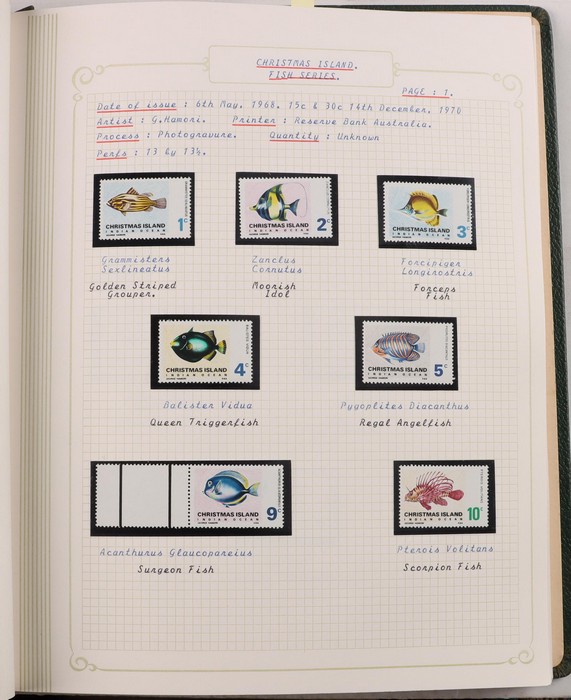 CHRISTMAS ISLAND.
FISH SERIES.
PAGE : 1.
Date of issue : 6th May. 1968. 15c & 30c 14th December. 1970
Artist : G.Hamori. Printer : Reserve Bank Australia.
Process : Photogravure. Quantity : Unknown
Perfs : 13 by 13½.
1c
CHRISTMAS ISLAND
INDIAN OCEAN
2c
CHRISTMAS ISLAND
INDIAN OCEAN
3c
CHRISTMAS ISLAND
INDIAN OCEAN
Grammisters
Serlineatus
Golden Striped
Grouper.
Zanclus
Cornutus
Moorish
Idol
Forcipiger
Longirostris
Forceps
Fish
4c
CHRISTMAS ISLAND
INDIAN OCEAN
5c
CHRISTMAS ISLAND
INDIAN OCEAN
Balister Vidua
Queen Triggerfish
Pygoplites Diacanthus
Regal Angelfish
9c
CHRISTMAS ISLAND
INDIAN OCEAN
10c
CHRISTMAS ISLAND
INDIAN OCEAN
Acanthurus Glaucopareius
Surgeon Fish
Pterois Volitans
Scorpion Fish